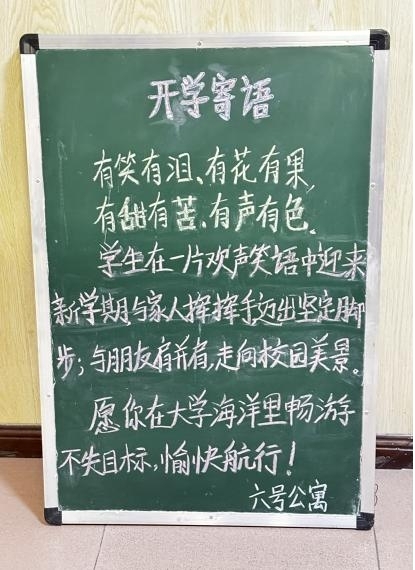 开学寄语
有笑有泪、有花有果,
有甜有苦、有声有色.
学生在一片欢声笑语中迎来
新学期与家人挥挥手迈出坚定脚
步;与朋友肩并肩,走向校园美景。
愿你在大学海洋里畅游
不失目标,愉快航行!
六号公寓